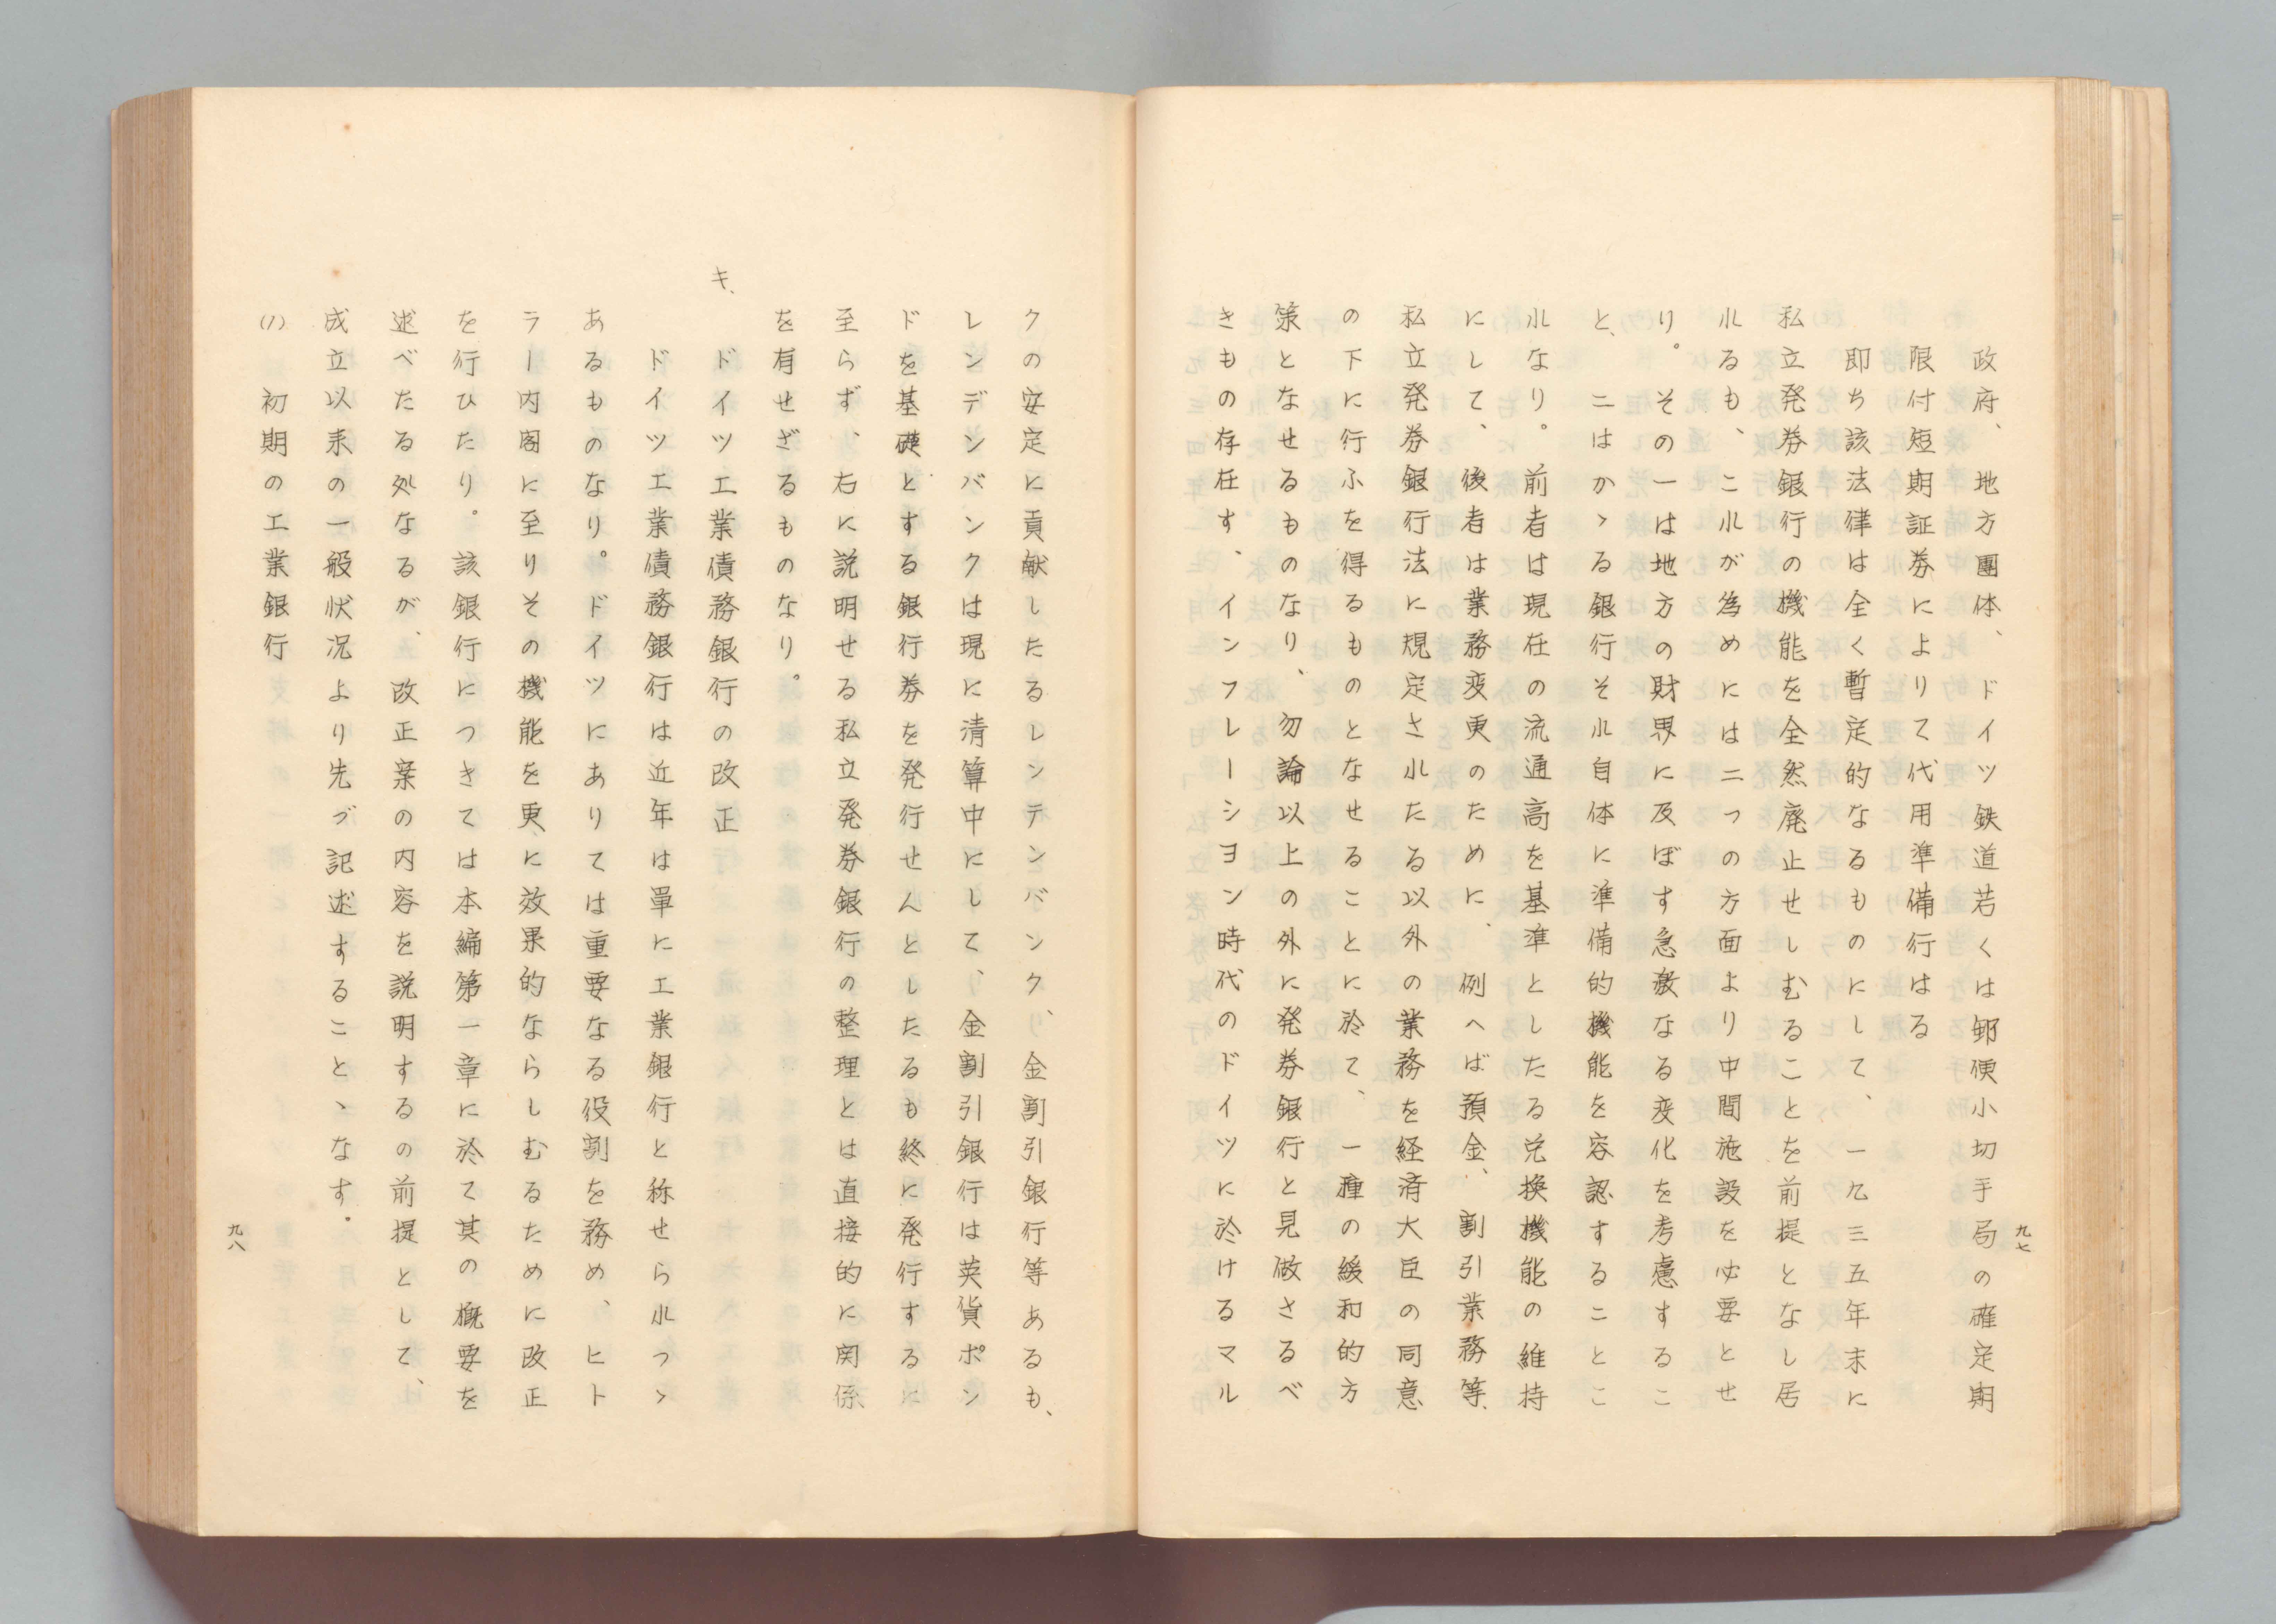 政府、地方團体、ドイツ鉄道若くは郵便小切手局の確定期
限付短期証券によりて代用準備行はる
即ち該法律は全く暫定的なるものにして、一九三五年末に
私立発券銀行の機能を全然廃止せしむることを前提となし居
れるも、これが為めには二つの方面より中間施設を必要とせ
り。その一は地方の財界に及ぼす急激なる変化を考慮するこ
と、二はかゝる銀行それ自体に準備的機能を容認することこ
れなり。前者は現在の流通高を基準としたる兌換機能の維持
にして、後者は業務変更のために、例へば預金、割引業務等、
私立発券銀行法に規定されたる以外の業務を経済大臣の同意
の下に行ふを得るものとなせることに於て、一種の緩和的方
策となせるものなり、勿論以上の外に発券銀行と見做さるべ
きもの存在す、インフレーシヨン時代のドイツに於けるマル
九七
クの安定に貢献したるレンテンバンク、金割引銀行等あるも、
レンデンバンクは現に清算中にして、金割引銀行は英貨ポン
ドを基礎とする銀行券を発行せんとしたるも終に発行するに
至らず、右に説明せる私立発券銀行の整理とは直接的に関係
を有せざるものなり。
キ、ドイツ工業債務銀行の改正
ドイツ工業債務銀行は近年は単に工業銀行と称せられつゝ
あるものなり。ドイツにありては重要なる役割を務め、ヒト
ラー内閣に至りその機能を更に效果的ならしむるために改正
を行ひたり。該銀行につきては本締第一章に於て其の概要を
述べたる処なるが、改正案の内容を説明するの前提として、
成立以来の一般状況より先づ記述することゝなす。
(1) 初期の工業銀行
九八